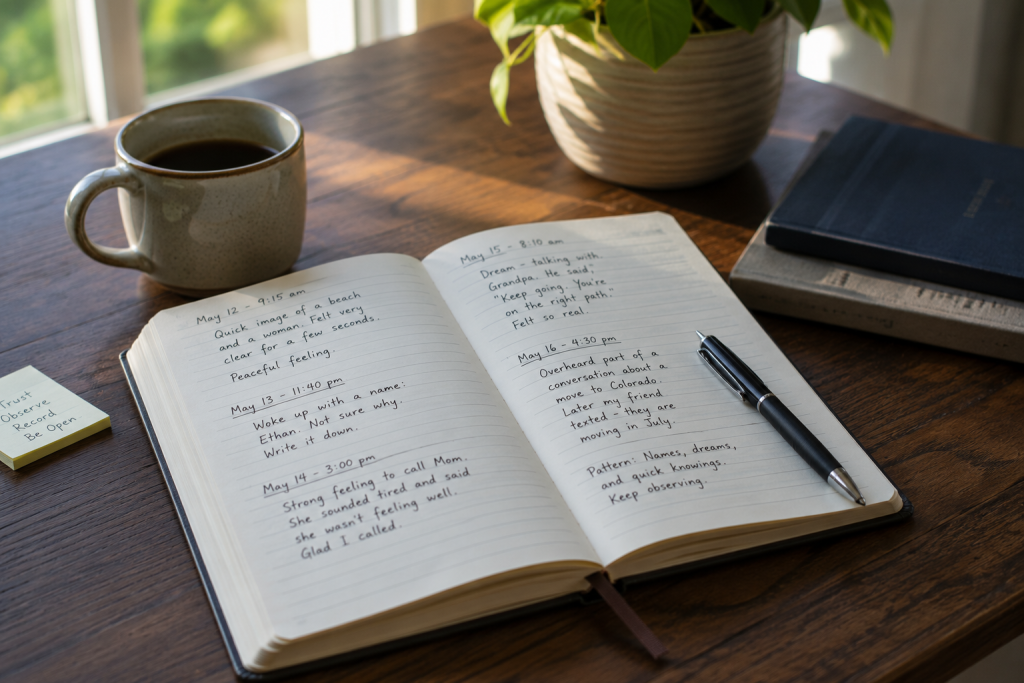 Trust
Observe
Record
Be Open
May 12 - 9:15 am
Quick image of a beach
and a woman. Felt very
clear for a few seconds.
Peaceful feeling.
May 13 - 11:40 pm
Woke up with a name:
Ethan. Not sure why.
Write it down.
May 14 - 3:00 pm
Strong feeling to call Mom.
She sounded tired and said
she wasn't feeling well.
Glad I called.
May 15 - 8:10 am
Dream - talking with
Grandpa. He said,
"Keep going. You're
on the right path."
Felt so real.
May 16 - 4:30 pm
Overheard part of a
conversation about a
move to Colorado.
Later my friend
texted - they are
moving in July.
Pattern: Names, dreams,
and quick knowings.
Keep observing.